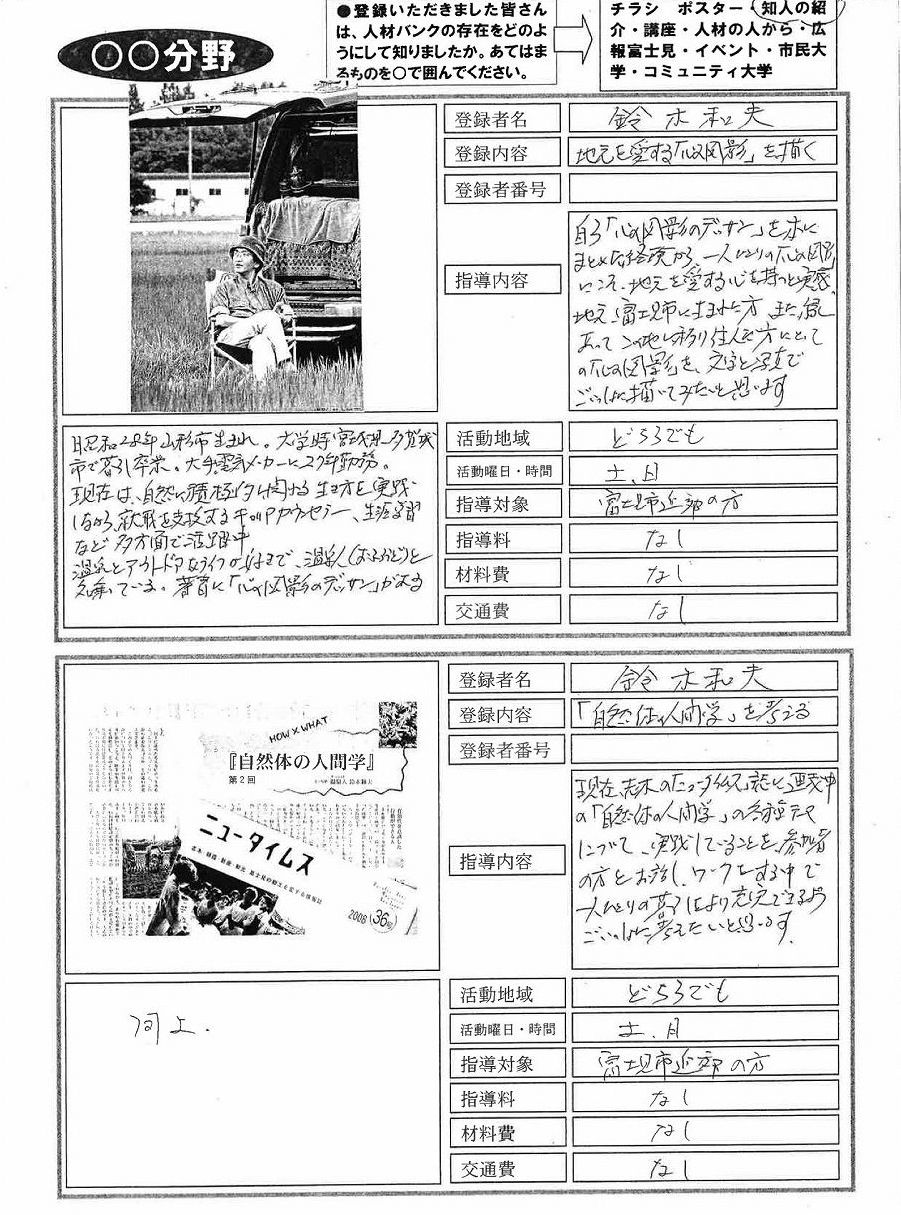 〇〇分野
●登録いただきました皆さん
は、人材バンクの存在をどのよ
うにして知りましたか。あてはま
るものを〇で囲んでください。
チラシ ポスター・知人の紹
介・講座・人材の人から・広
報富士見・イベント・市民大
学・コミュニティ大学
登録者名 鈴木和夫
登録内容 地元を愛する「心の図影」を描く
登録者番号
指導内容
自ら「心の図影のデッサン」を本に
まとめた経験から、一人ひとりの「心の図影」
にこそ、地元を愛する心を持つと実感。
地元、富士見市に生まれた方、また、縁
あってこの地に移り住んだ方にとって
の「心の図影」を、文字と写真で
ごいっしょに描いてみたいと思います
昭和28年山形市生まれ。大学時宮城県多賀城
市で暮らし卒業。大手電気メーカーに27年勤務。
現在は、自然に積極的に関わる生き方を実践
しながら、就職を支援するキャリアカウンセラー、生涯学習
など多方面で活躍中
温泉とアウトドアなライフが好きで、温泉人(おふろうど)と
名乗っている。著書に「心の図影のデッサン」がある
活動地域 どちらでも
活動曜日・時間 土、日
指導対象 富士見市近郊の方
指導料 なし
材料費 なし
交通費 なし
HOW X WHAT
『自然体の人間学』
第2回
ニュータイムス
2008 36号
登録者名 鈴木和夫
登録内容 「自然体の人間学」を考える
登録者番号
指導内容
現在、志木の「ニュータイムス」誌に連載中
の「自然体の人間学」の各種テーマ
について、実践していることを参加者
の方とお話し、ワークをする中で
一人ひとりの暮らしがより充実できるよう
ごいっしょに考えたいと思います。
同上.
活動地域 どちらでも
活動曜日・時間 土、日
指導対象 富士見市近郊の方
指導料 なし
材料費 なし
交通費 なし